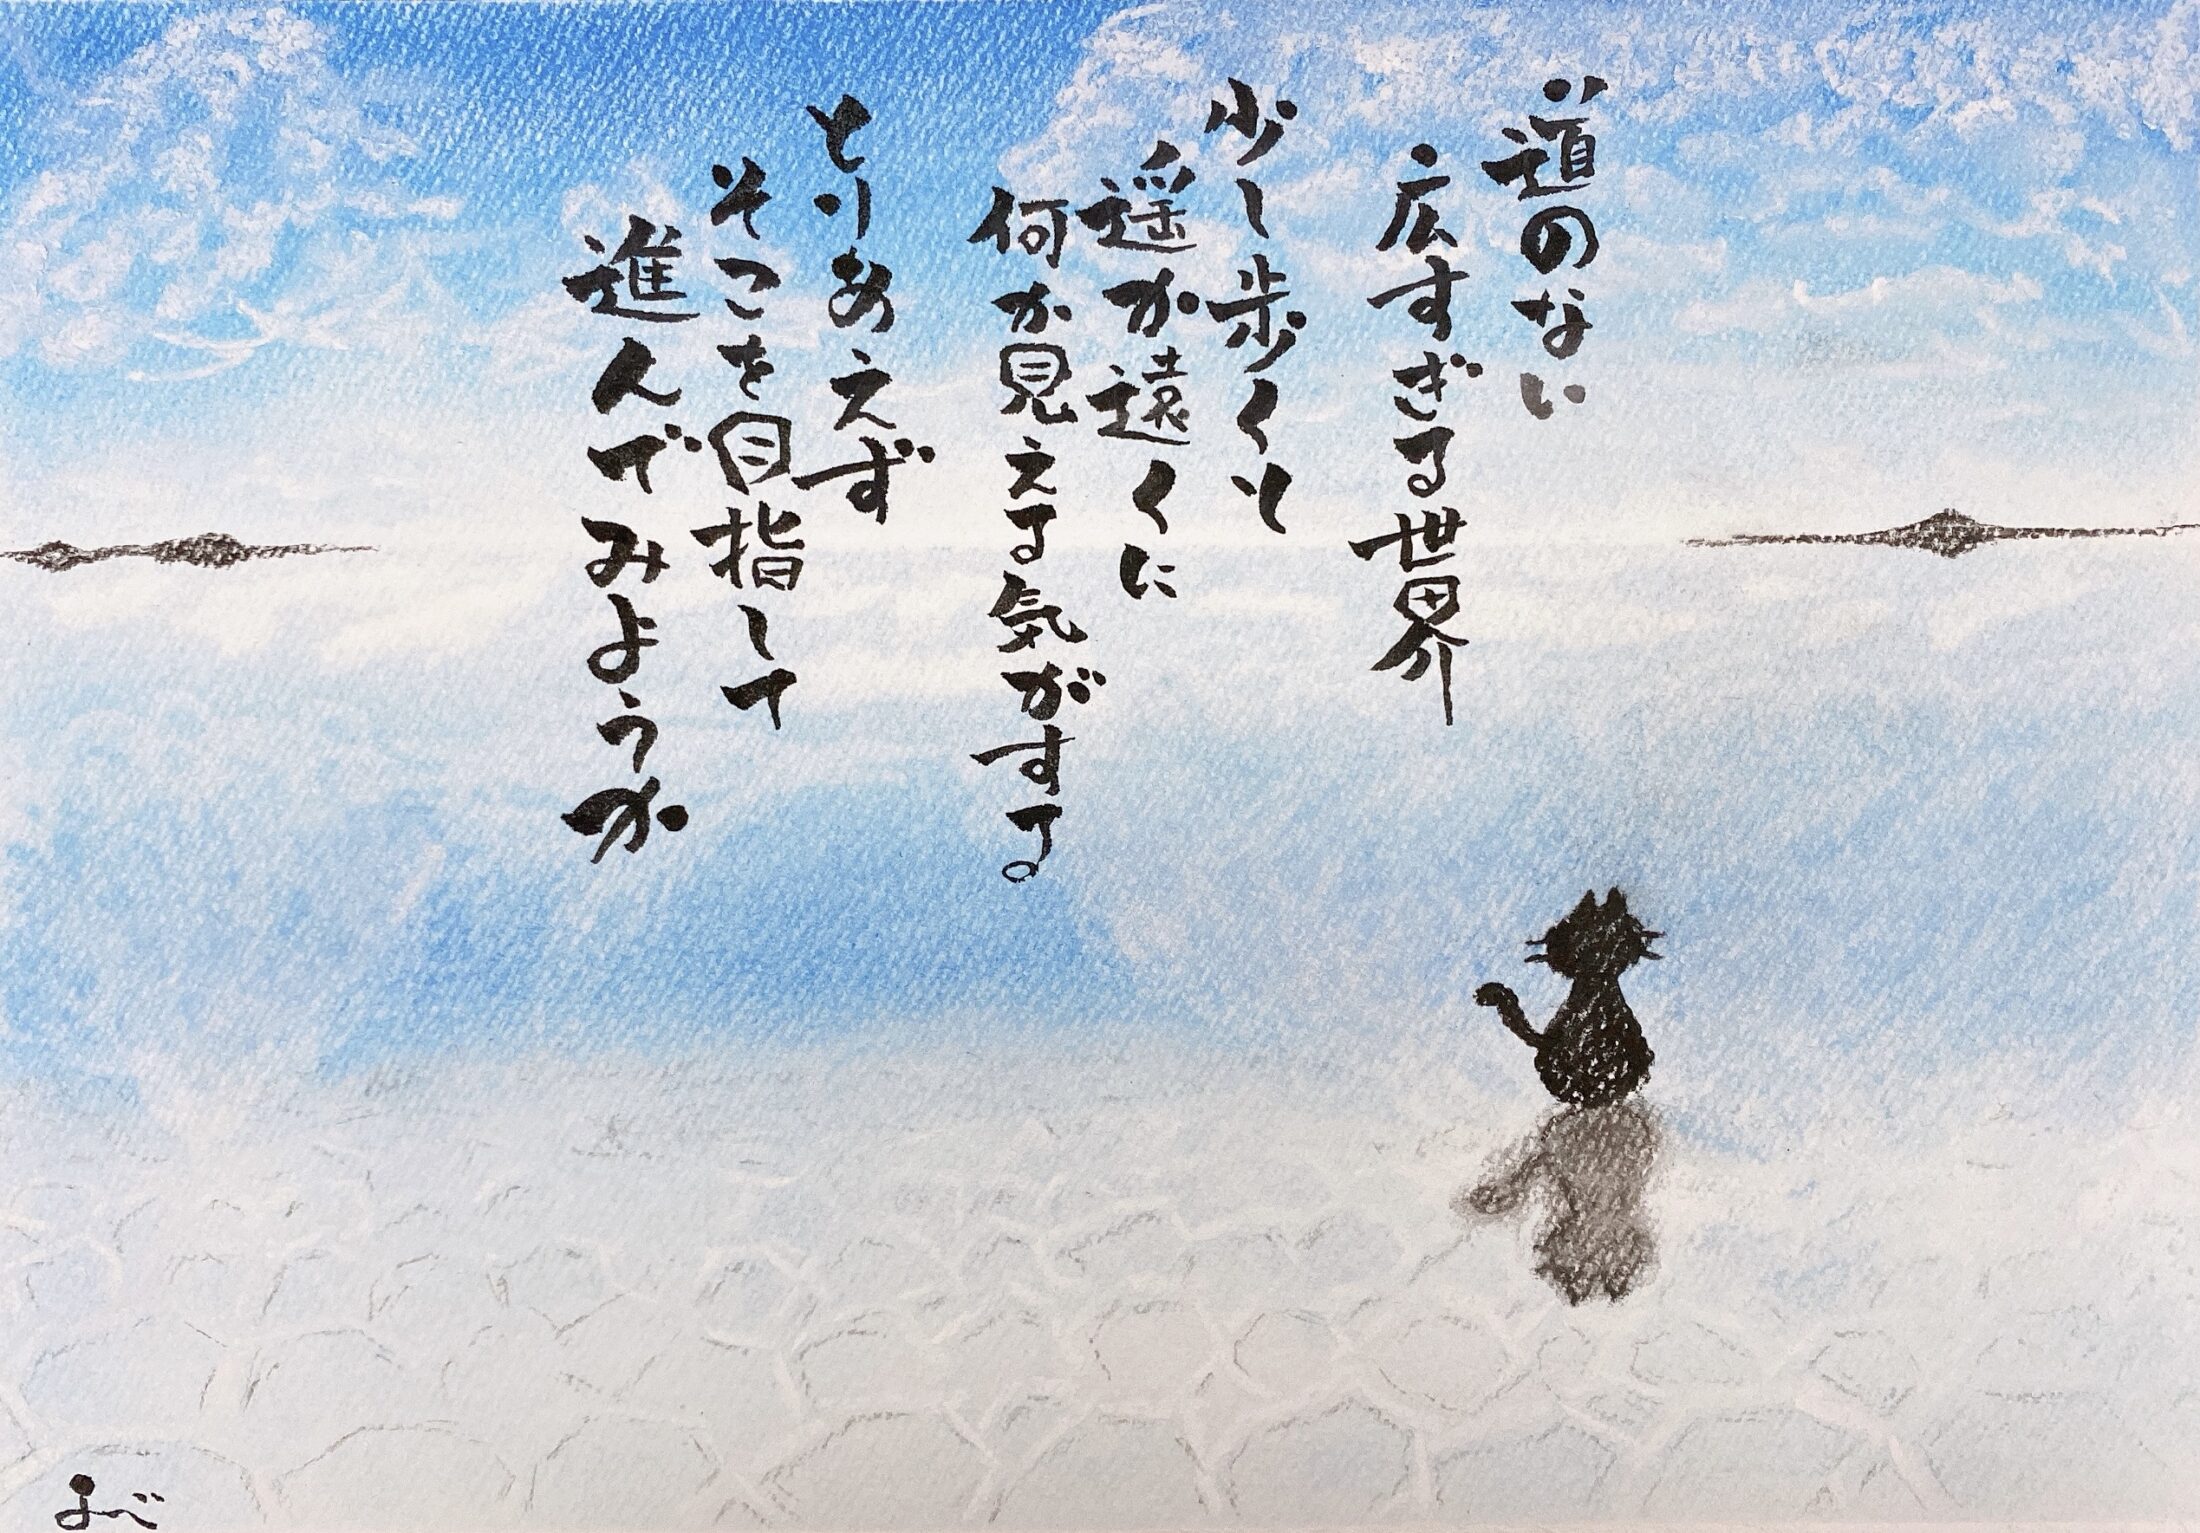 道のない
広すぎる世界
少し歩くと
遥か遠くに
何か見える気がする
とりあえず
そこを目指して
進んでみようか
よべ